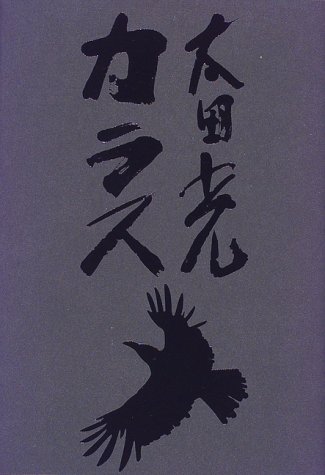 太田光
カラス